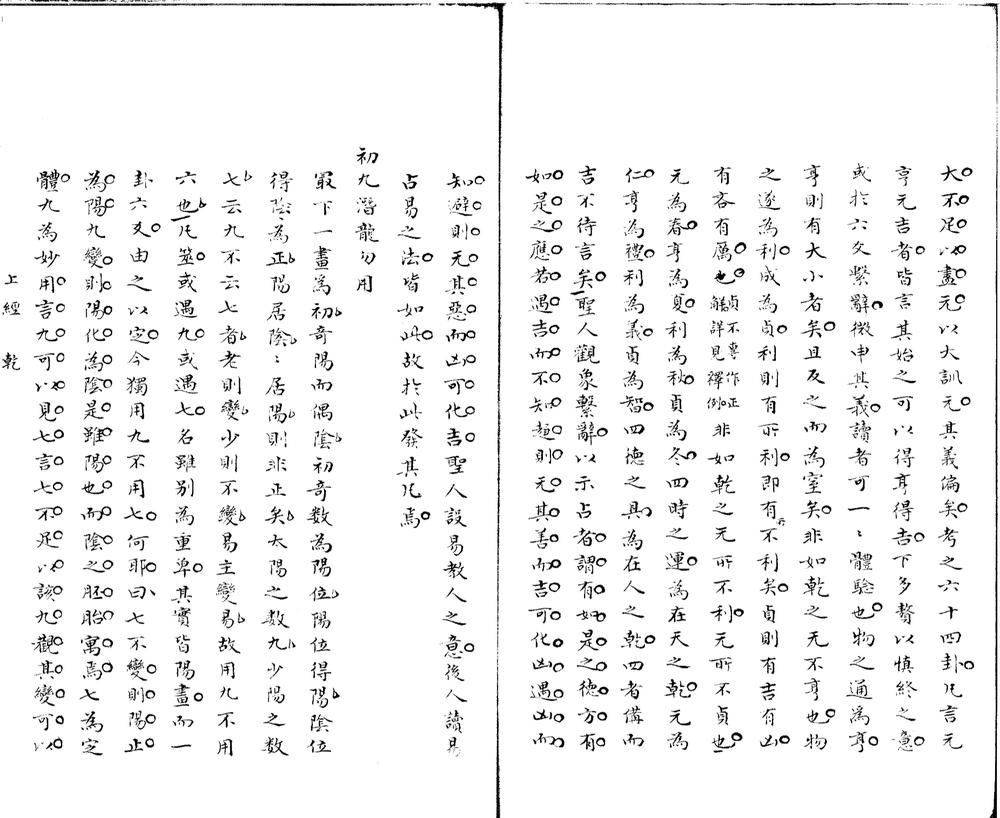 大不足以盡元以大訓元其義偏矣考之六十四卦凡言元
亨元吉者皆言其始之可以得亨得吉下多贅以慎終之意
或於六爻繫辭微申其義讀者可一〻體騐也物之通為亨
亨則有大小者矣且反之而為窒矣非如乾之无不亨也物
之遂為利成為貞利則有所利即有所不利矣貞則有吉有凶
有吝有厲也貞不專作正觧詳見釋例非如乾之无所不利无所不貞也
元為春亨為夏利為秋貞為冬四時之運為在天之乾元為
仁亨為禮利為義貞為智四德之具為在人之乾四者備而
吉不待言矣聖人觀象繫辭以示占者謂有如是之德方有
如是之應若遇吉而不知趨則无其善而吉可化凶遇凶而
知避則无其惡而凶可化吉聖人設易教人之意後人讀易
占易之法皆如此故於此發其凡焉
初九潛龍勿用
最下一畫為初奇陽而偶陰初奇數為陽位陽位得陽陰位
得陰為正陽居陰〻居陽則非正矣太陽之數九少陽之數
七云九不云七者老則變少則不變易主變易故用九不用
六也凡筮或遇九或遇七名雖別為重單其實皆陽畫而一
卦六爻由之以定今獨用九不用七何耶曰七不變則陽止
為陽九變則陽化為陰是雖陽也而陰之胚胎寓焉七為定
體九為妙用言九可以見七言七不足以該九觀其變可以
上經　乾